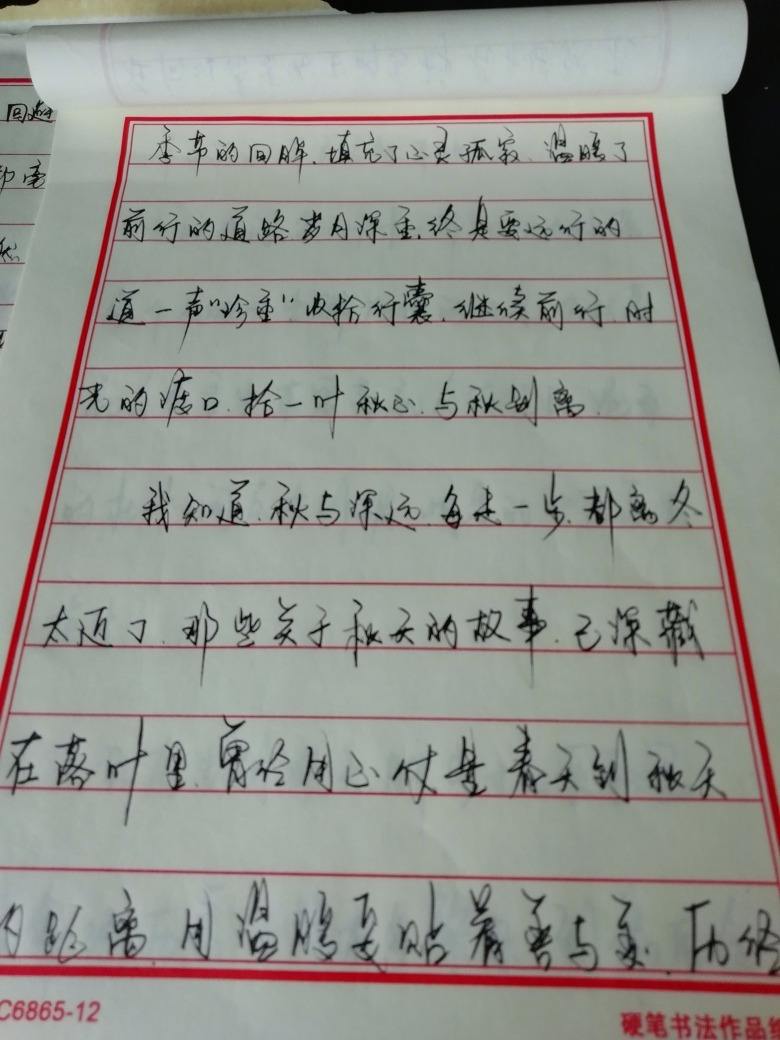 季节的回眸，填充了心灵孤寂，温暖了
前行的道路岁月深重，终是要远行的
道一声"珍重"，收拾行囊，继续前行，时
光的渡口，拾一叶秋心，与秋别离，
我知道，秋与深远，每走一步，都离冬
太近了，那些关于秋天的故事，已深藏
在落叶里，曾经用心丈量春天到秋天
的距离，用温暖要贴着善与美，
C6865-12
硬笔书法作品纸